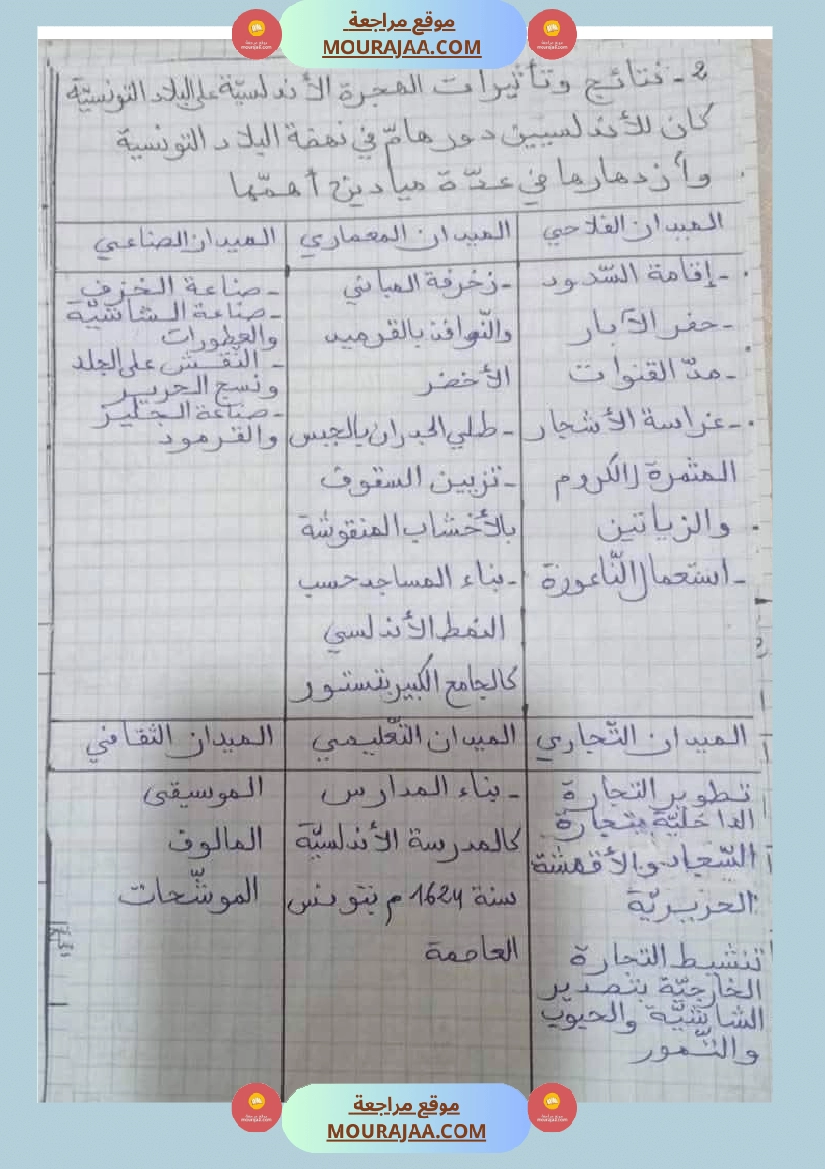 موقع مراجعة
MOURAJAA.COM
2 - نتائج وتأثيرات الهجرة الأندلسيّة على البلاد التونسيّة
كان للأندلسيين دور هامّ في نهضة البلاد التونسية
وأزدهارها في عدّة ميادين أهمّها
الميدان الفلاحي
- إقامة السّدود
- حفر الآبار
- مدّ القنوات
- غراسة الأشجار
المثمرة (الكروم
والزياتين
- استعمال النّاعورة
الميدان المعماري
- زخرفة المباني
والنّوافذ بالقرميد
الأخضر
- طلي الجدران بالجبس
- تزيين السقوف
بالأخشاب المنقوشة
- بناء المساجد حسب
النمط الأندلسي
كالجامع الكبير بتستور
الميدان الصناعي
- صناعة الخزف
- صناعة الشاشيّة
والعطورات
- النّقش على الجلد
ونسج الحرير
- صناعة الجليز
والقرمود
الميدان التّجاري
تطوير التجارة
الداخليّة بتجارة
السّجاد والأقمشة
الحريريّة
تنشيط التجارة
الخارجيّة بتصدير
الشاشيّة والحبوب
والتّمور
الميدان التّعليمي
- بناء المدارس
كالمدرسة الأندلسيّة
سنة 1624 م بتونس
العاصمة
الميدان الثقافي
الموسيقى
المالوف
الموشّحات
موقع مراجعة
MOURAJAA.COM